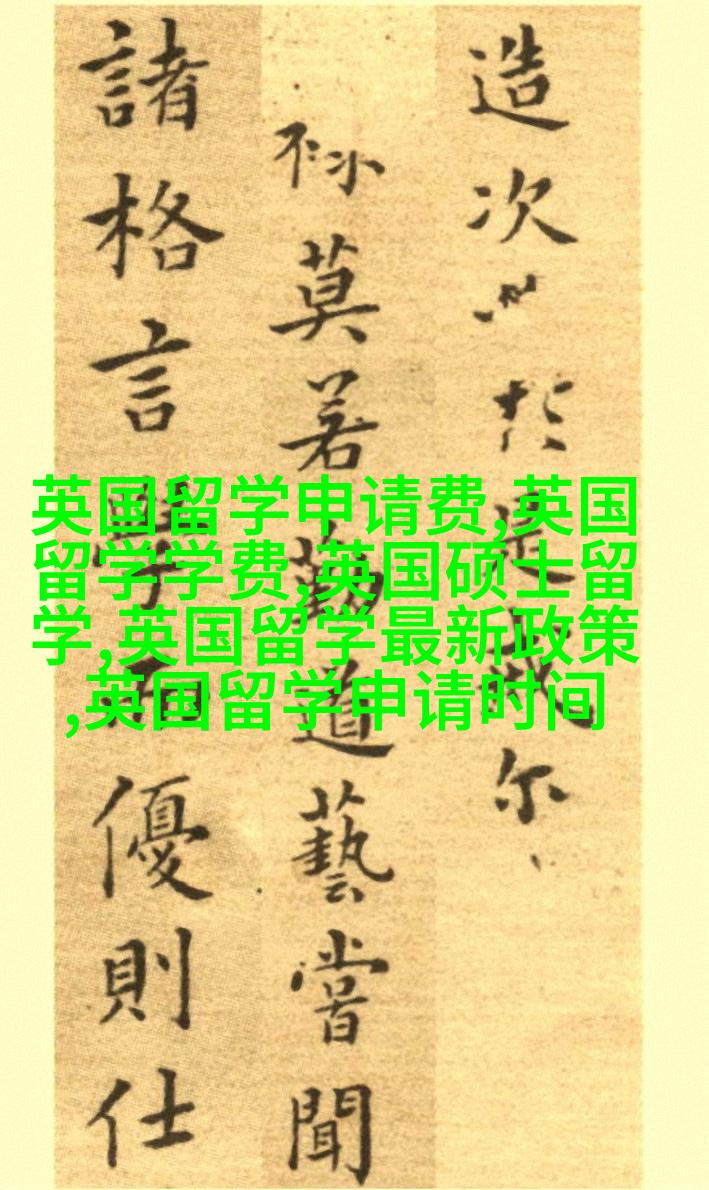 造次於是尔
莫若勤道藝嘗聞
諸格言學而優則仕
英国留学申请费,英国
留学学费,英国硕士留
学,英国留学最新政策
,英国留学申请时间